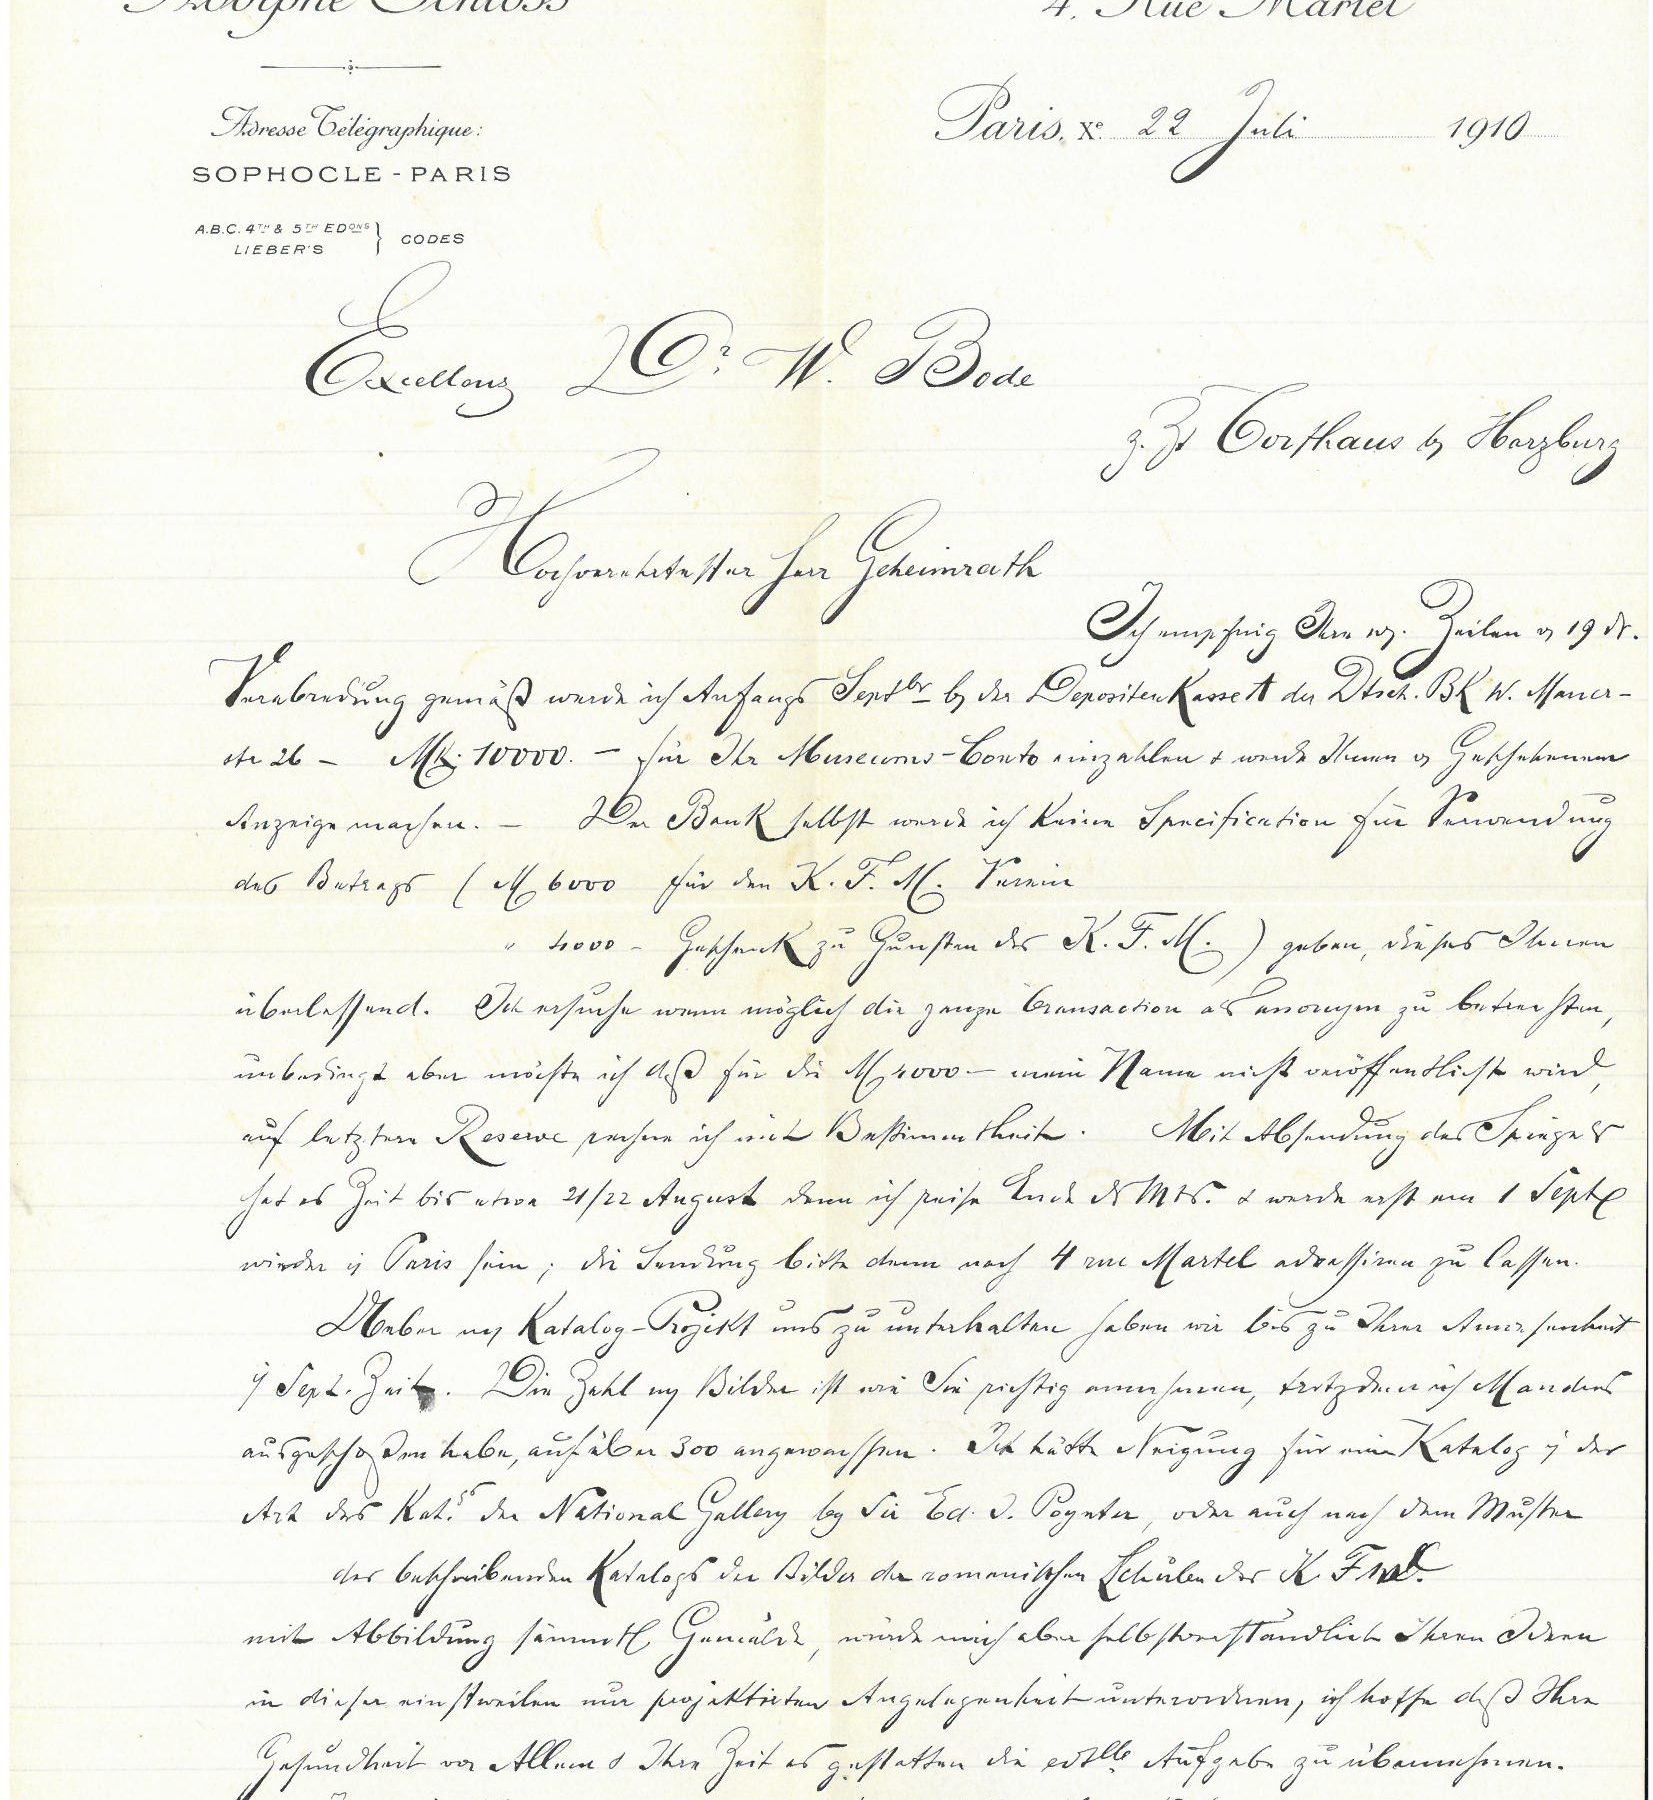 Adolphe Schloss
4, Rue Martel
Adresse Télégraphique:
SOPHOCLE-PARIS
A.B.C. 4TH & 5TH EDONS
LIEBER'S } CODES
Paris, Xe 22 Juli 1910
Excellenz Dr W. Bode
z. Zt Torfhaus b/ Harzburg
Hochverehrtester Herr Geheimrath
Ich empfing Ihre Zeilen v 19 ds.
Verabredung gemäß werde ich Anfangs Septbr b/ der Depositenkasse A der Dtsch. BK W. Mauer-
str 26 – Mk. 10000. – für Ihr Museums-Conto einzahlen & werde Ihnen v Geschehenem
Anzeige machen. – Der Bank selbst werde ich keine Specification für Verwendung
des Betrags ( M 6000 für den K. F. M. Verein
" 4000 – Geschenk zu Gunsten des K. F. M. ) geben, dieses Ihnen
überlassend. Ich ersuche wenn möglich die ganze Transaction als anonym zu betrachten,
unbedingt aber möchte ich daß für die M 4000 – mein Name nicht veröffentlicht wird,
auf letztere Reserve rechne ich mit Bestimmtheit. Mit Absendung des Spiegels
hat es Zeit bis etwa 21/22 August denn ich reise Ende ds Mts. & werde erst am 1 Sept
wieder i/ Paris sein; die Sendung bitte dann nach 4 rue Martel adressiren zu lassen.
Ueber m/ Katalog-Projekt uns zu unterhalten haben wir bis zu Ihrer Anwesenheit
i/ Sept. Zeit. Die Zahl m/ Bilder ist wie Sie richtig annehmen, trotzdem ich Manches
ausgeschoßen habe, auf über 300 angewachsen. Ich hätte Neigung für einen Katalog i/ der
Art des Kat.s der National Gallery by Sir Ed. J. Poynter, oder auch nach dem Muster
des beschreibenden Katalogs der Bilder der romanischen Schulen des K F
mit Abbildung sämmtl Gemälde, würde mich aber selbstverständlich Ihren Ideen
in dieser einstweilen nur projektirten Angelegenheit unterordnen, ich hoffe daß Ihre
Gesundheit vor Allem & Ihre Zeit es gestatten die Aufgabe zu übernehmen.